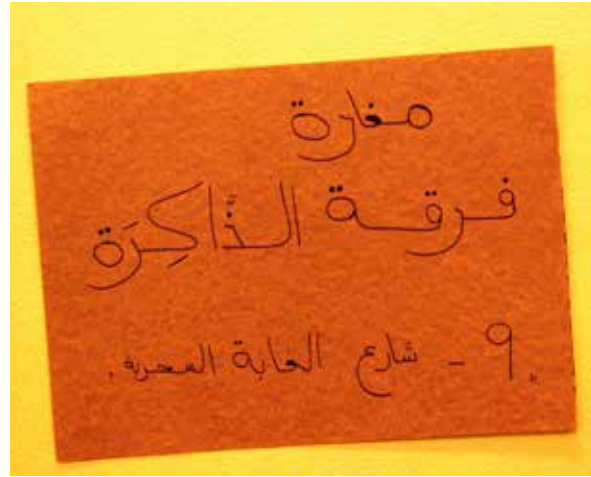 مغارة
فرقة الذَّاكِرَة
٩ - شارع الغابة السحرية.